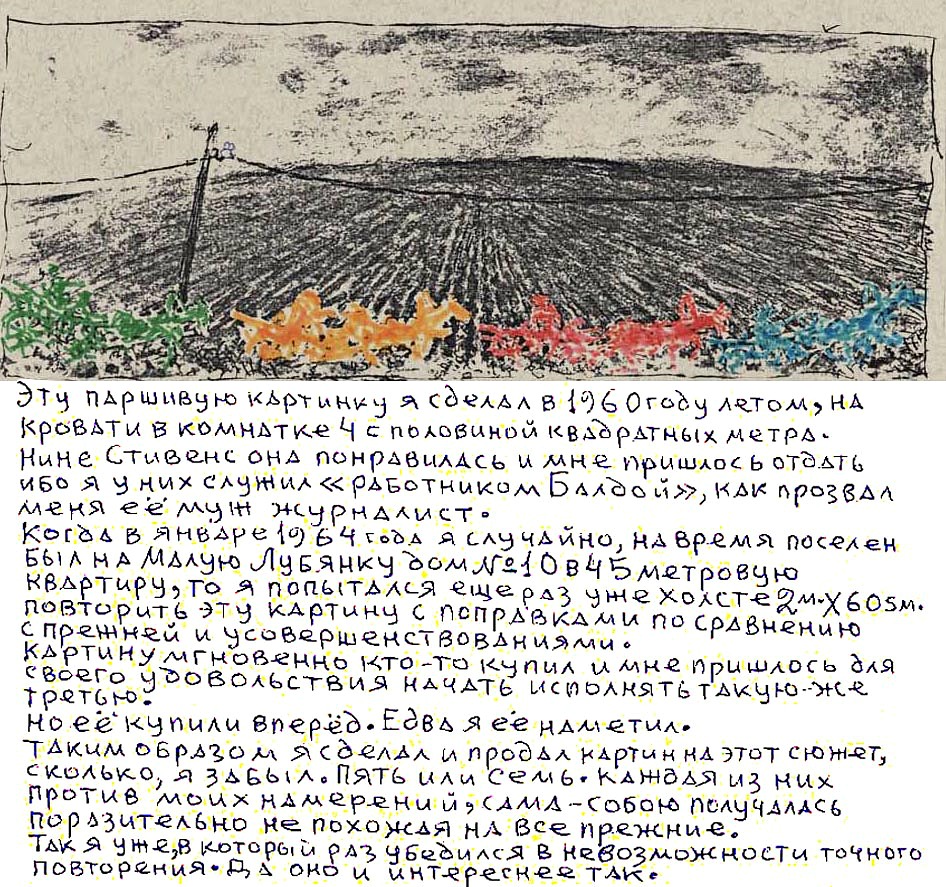 Эту паршивую картинку я сделал в 1960 году летом, на
кровати в комнатке 4 с половиной квадратных метра.
Нине Стивенс она понравилась и мне пришлось отдать
ибо я у них служил «работником Балдой», как прозвал
меня её муж журналист.
Когда в январе 1964 года я случайно, на время поселен
был на Малую Лубянку дом №10 в 45 метровую
квартиру, то я попытался еще раз уже холсте 2м.х60sм.
повторить эту картину с поправками по сравнению
с прежней и усовершенствованиями.
Картину мгновенно кто-то купил и мне пришлось для
своего удовольствия начать исполнять такую-же
третью.
Но её купили вперёд. Едва я её наметил.
Таким образом я сделал и продал картин на этот сюжет,
сколько, я забыл. Пять или семь. Каждая из них
против моих намерений, сама-собою получалась
поразительно не похожая на все прежние.
Так я уже, в который раз убедился в невозможности точного
повторения. Да оно и интереснее так.